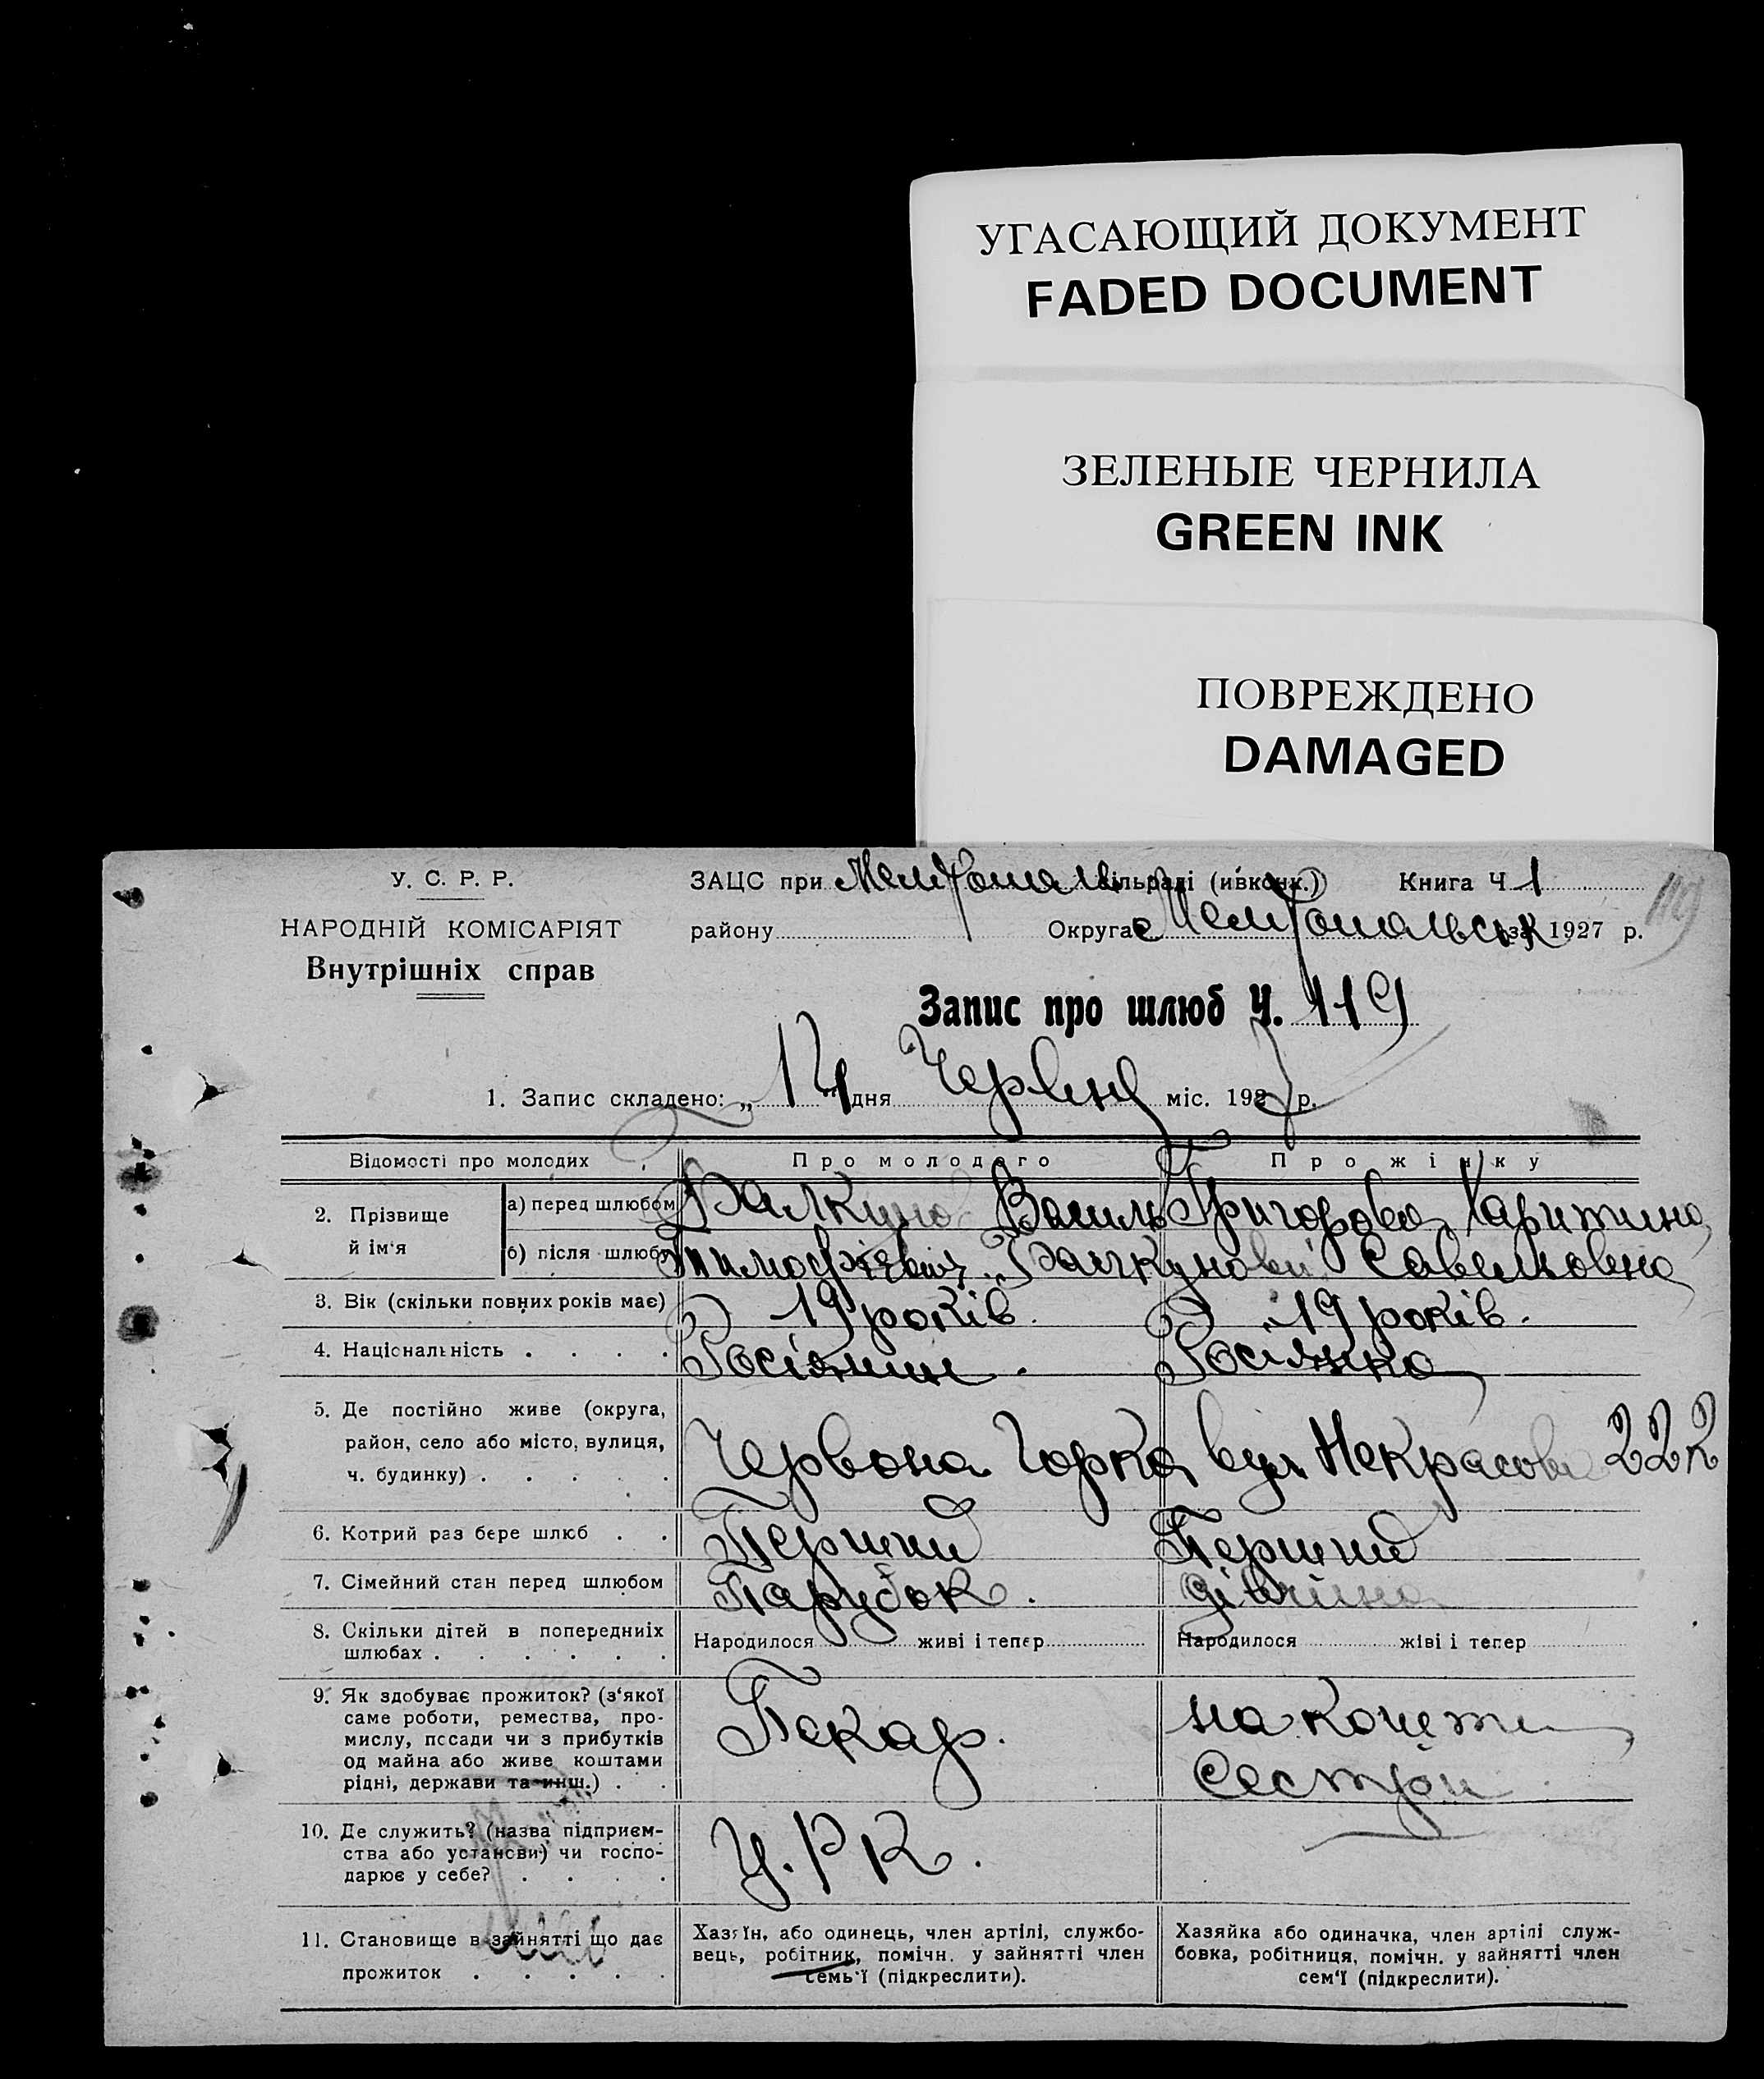 УГАСАЮЩИЙ ДОКУМЕНТ
FADED DOCUMENT
ЗЕЛЕНЫЕ ЧЕРНИЛА
GREEN INK
ПОВРЕЖДЕНО
DAMAGED
У. С. Р. Р.
НАРОДНІЙ КОМІСАРІЯТ
Внутрішніх справ
ЗАЦС при сільраді (ивконк.) Книга Ч 1
119
району Округа Мелітопольськ за 1927 р.
Запис про шлюб Ч. 119
1. Запис складено: „ " дня Червня міс. 1927 р.
Відомості про молодих Про молодого Про жінку
2. Прізвище й ім'я
а) перед шлюбом Василь Григорова Харитина
б) після шлюбу Тимофієвич Савельовна
3. Вік (скільки повних років має) 19 років. 19 років.
4. Національність . . . . Росіянин. Росіянка
5. Де постійно живе (округа,
район, село або місто, вулиця,
ч. будинку) . . . . .
Червона Горка вул Некрасова 22
6. Котрий раз бере шлюб . . Перший Перший
7. Сімейний стан перед шлюбом Парубок. дівчина
8. Скільки дітей в попередниіх
шлюбах . . . . . .
Народилося живі і тепер Народилося жіві і тепер
9. Як здобуває прожиток? (з'якої
саме роботи, ремества, про-
мислу, посади чи з прибутків
од майна або живе коштами
рідні, держави та инш.) . .
Пекар.
на кошти
сестри
10. Де служить? (назва підприєм-
ства або установи) чи госпо-
дарює у себе? . . . .
Ц.РК.
11. Становище в зайнятті що дає
прожиток . . . . .
Хазяїн, або одинець, член артілі, службо-
вець, робітник, помічн. у зайнятті член
семь'ї (підкреслити).
Хазяйка або одиначка, член артілі служ-
бовка, робітниця, помічн. у зайнятті член
сем'ї (підкреслити).